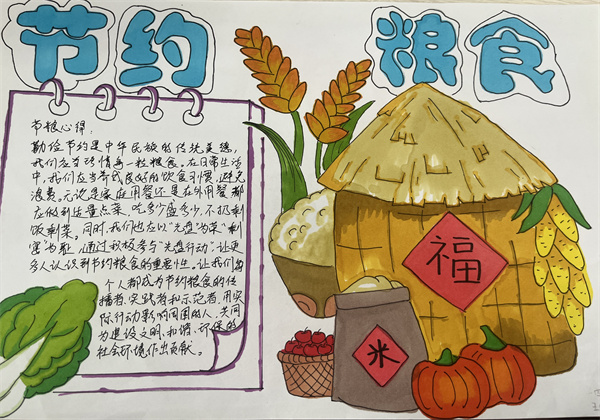 节约
粮食
节粮心得：
勤俭节约是中华民族的传统美德，
我们应当珍惜每一粒粮食。在日常生活
中，我们应当养成良好的饮食习惯，避免
浪费。无论是家庭用餐还是在外用餐，都
应做到适量点菜，吃多少盛多少，不扔剩
饭剩菜。同时，我们也应以“光盘”为荣，“剩
宴”为耻，通过积极参与“光盘行动”，让更
多人认识到节约粮食的重要性。让我们每
个人都成为节约粮食的传
播者、实践者和示范者，用实
际行动影响周围的人，共同
为建设文明、和谐、环保的
社会环境作出贡献。
福
米